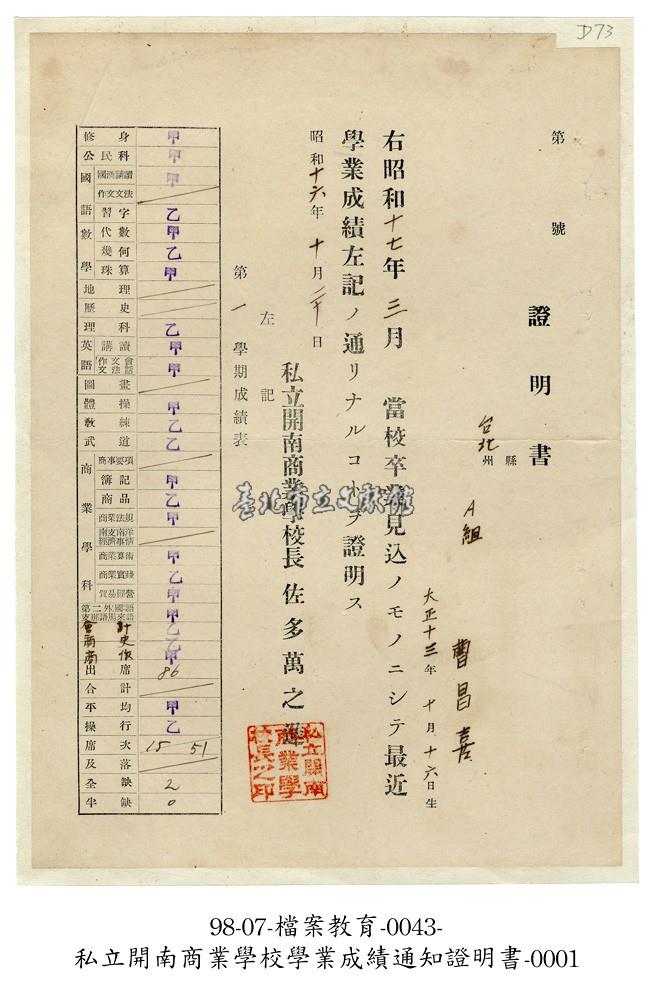 D73
第 號
證明書
台北 縣州
A組
曹昌喜
大正十三年十月十六日生
右昭和十七年三月當校卒業見込ノモノニシテ最近
學業成績左記ノ通リナルコトヲ證明ス
昭和十六年十月二十日
私立開南商業學校長 佐多萬之進
左記
第一學期成績表
修身 甲
公民科 甲
國語 國漢講讀 甲
作文文法
習字 乙
數學 代數 甲
幾何 乙
珠算 甲
地理
歷史
理科 乙
英語 講讀 甲
作文文法會話 甲
圖畫
體操 甲
教練 乙
武道 乙
商業學科 商事要項
簿記 甲
商品 乙
商業法規 甲
南支南洋經濟事情
商業算術 甲
商業實踐 乙
貿易經營 甲
第二外國語 甲
會計 乙
商史 乙
商作 甲
出席 86
合計
平均 甲
操行 乙
席次 15 51
及落
全缺 2
半缺 0
私立開南商業學校長之印
臺北市立文獻館
98-07-檔案教育-0043-
私立開南商業學校學業成績通知證明書-0001